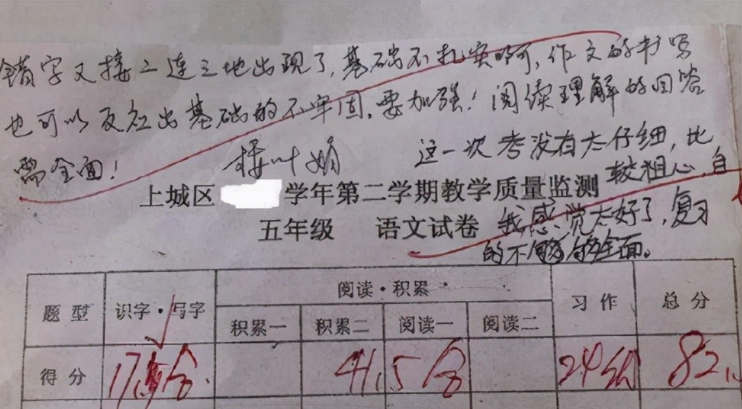 错字又接二连三地出现了,基础不扎实啊,作文的书写
也可以反应出基础的不牢固,要加强!阅读理解的回答
需全面!
楼叶娟
这一次考没有太仔细,比
较粗心,自
我感觉太好了,复习
的不够全面。
上城区 学年第二学期教学质量监测
五年级 语文试卷
题型 识字·写字 阅读·积累 习作 总分
积累一 积累二 阅读一 阅读二
得分 41.5分 24分 82